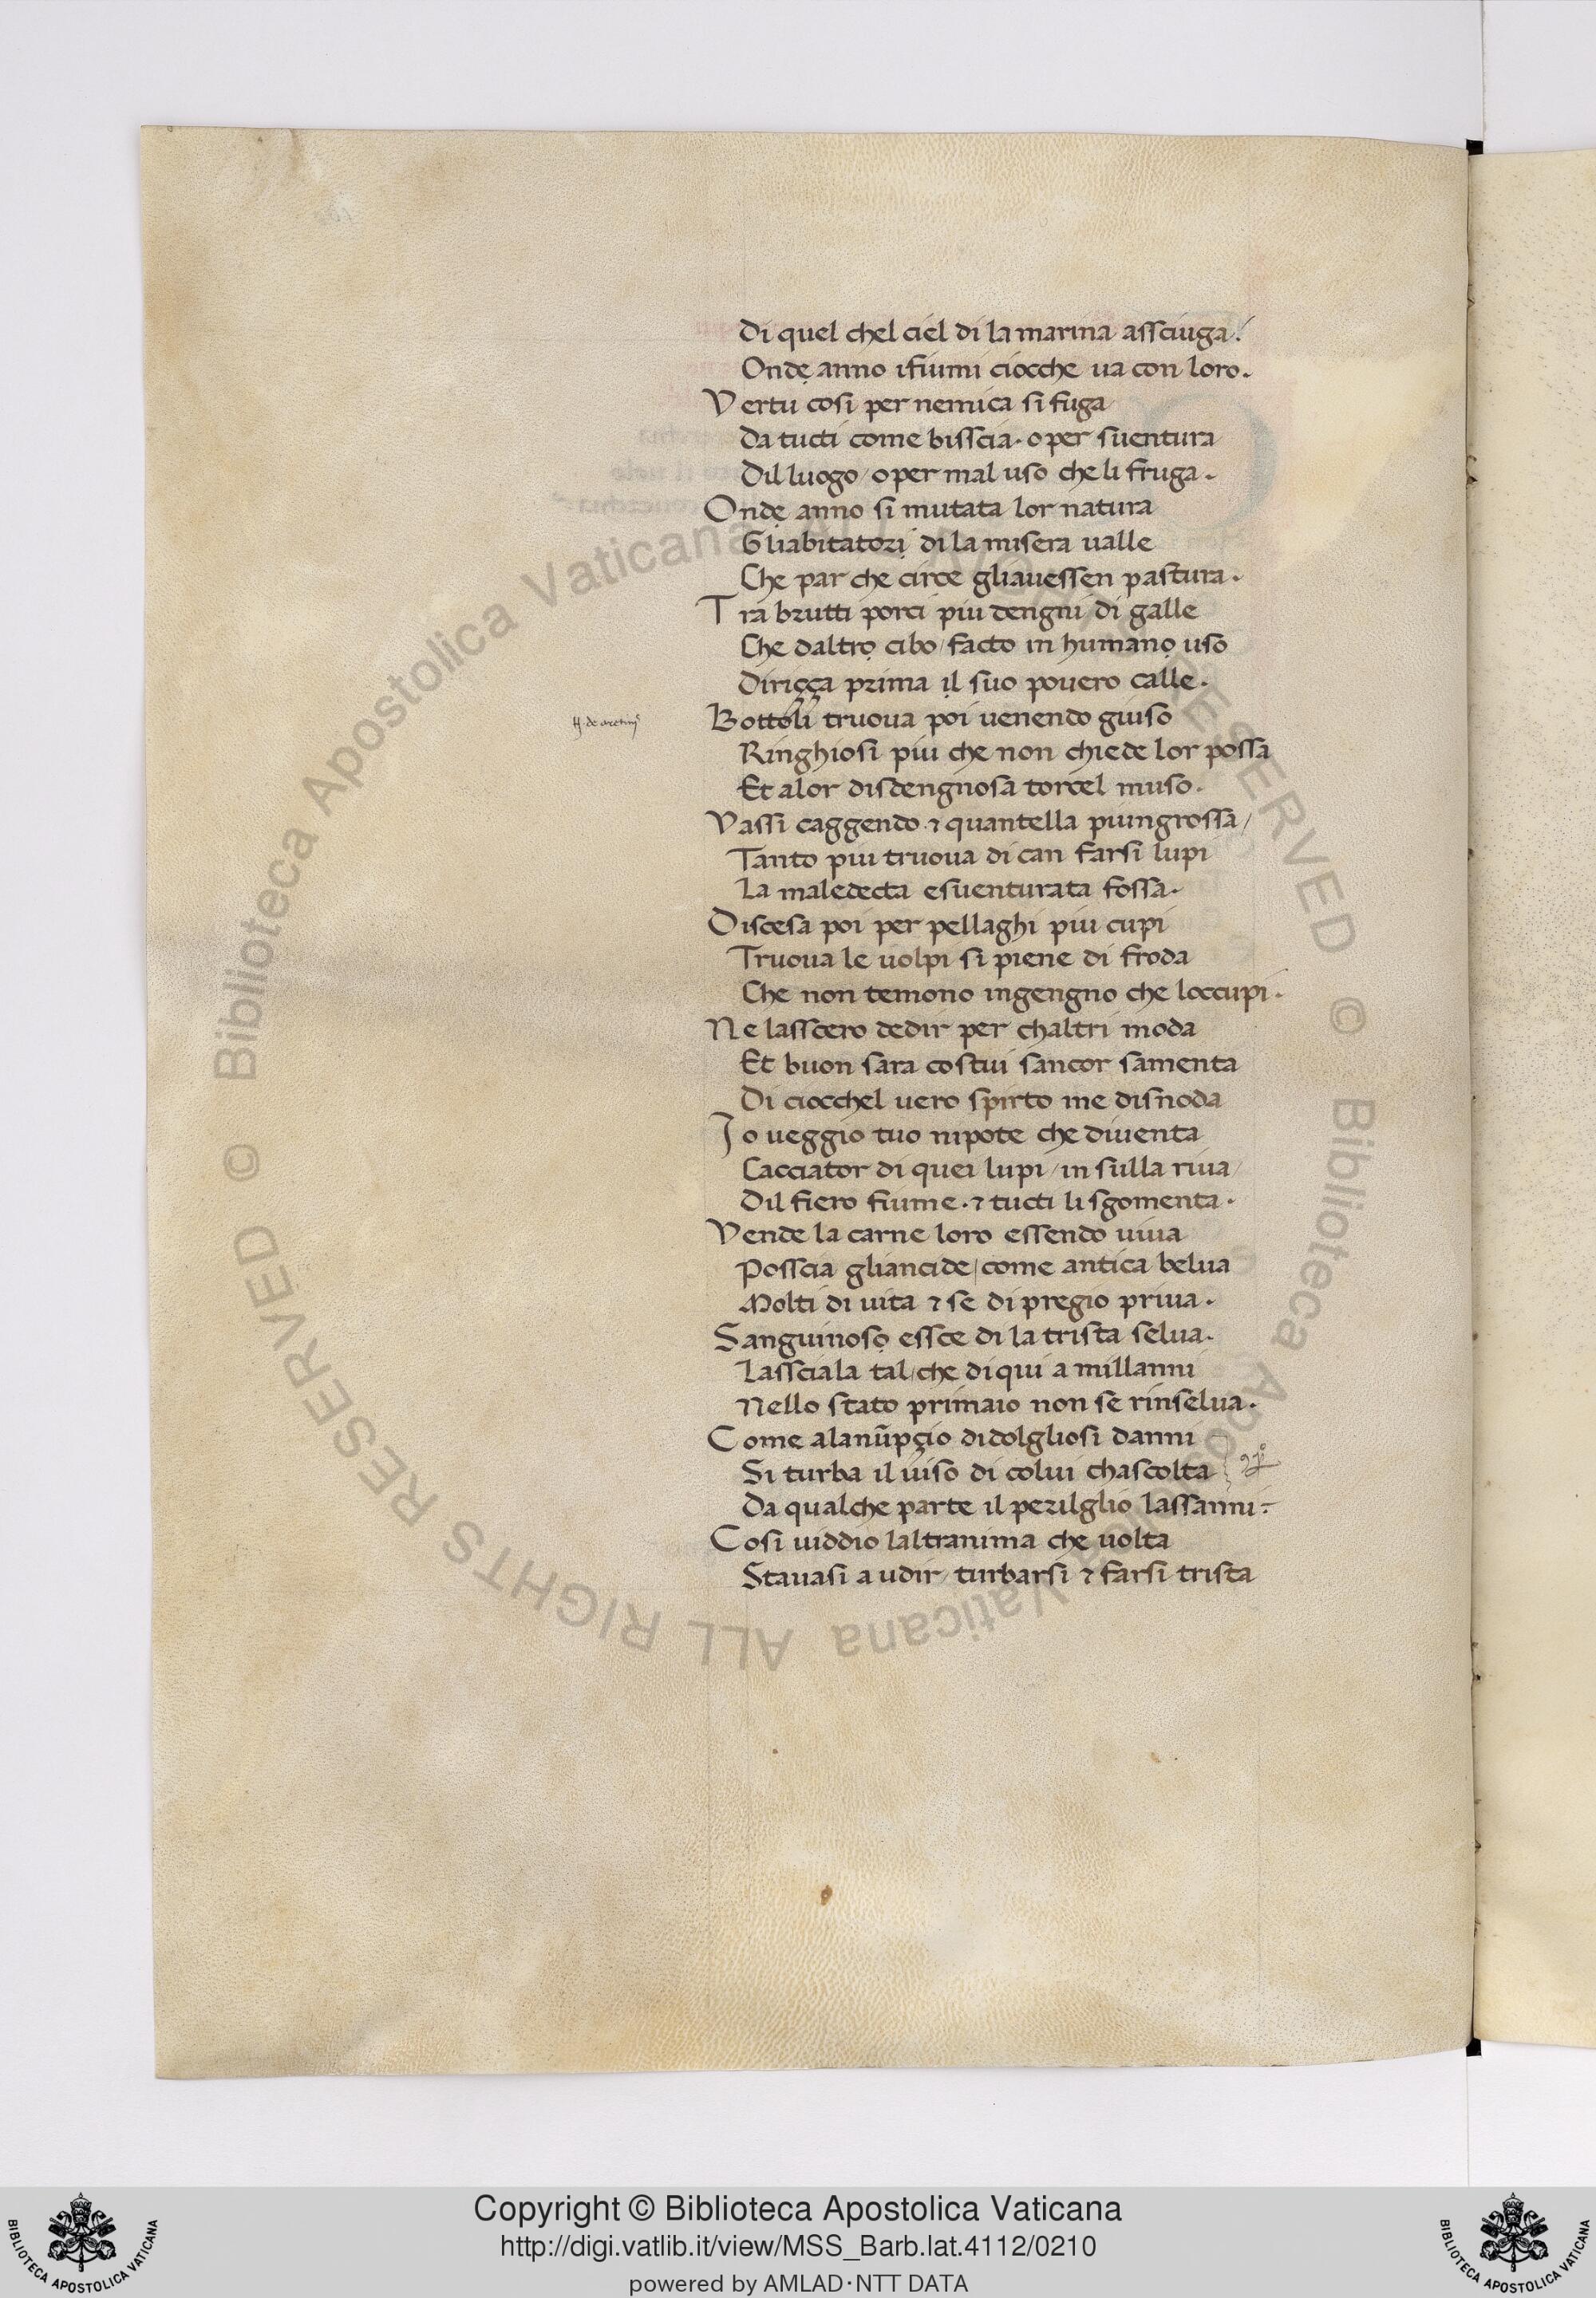 Di quel chel ciel di la marina assciuga.
Onde anno ifiumi ciocche ua con loro.
Vertu cosi per nemica si fuga
Da tucti come bisscia. o per suentura
Dil luogo / o per mal uso che li fruga.
Onde anno si mutata lor natura
Gliabitatori di la misera ualle
Che par che circe gliauessen pastura.
Tra brutti porci piu dengni di galle
Che daltro cibo / facto in humano uso
Diriçça prima il suo pouero calle.
H. de aretinis
Bottoli truoua poi uenendo giuso
Ringhiosi piu che non chiede lor possa
Et alor disdengnosa torcel muso.
Vassi caggendo. ⁊ quantella piungrossa /
Tanto piu truoua di can farsi lupi
La maledecta esuenturata fossa.
Discesa poi per pellaghi piu cupi
Truoua le uolpi si piene di froda
Che non temono ingengno che loccupi.
Ne lasscero dedir per chaltri moda
Et buon sara costui sancor samenta
Di ciocchel uero spirto me disnoda
Io ueggio tuo nipote che diuenta
Cacciator di quei lupi / in sulla riua /
Dil fiero fiume. ⁊ tucti li sgomenta.
Vende la carne loro essendo uiua
Posscia gliancide / come antica belua
Molti di uita ⁊ se di pregio priua.
Sanguinoso essce di la trista selua.
Lassciala tal / che di qui a millanni
Nello stato primaio non se rinselua.
Come alanūpçio didolgliosi danni
Si turba il uiso di colui chascolta
Da qualche parte il perilglio lassanni:
Cosi uiddio laltranima che uolta
Stauasi a udir / turbarsi ⁊ farsi trista
Copyright © Biblioteca Apostolica Vaticana
http://digi.vatlib.it/view/MSS_Barb.lat.4112/0210
powered by AMLAD·NTT DATA
BIBLIOTECA APOSTOLICA VATICANA
BIBLIOTECA APOSTOLICA VATICANA
© Biblioteca Apostolica Vaticana ALL RIGHTS RESERVED © Biblioteca Apostolica Vaticana ALL RIGHTS RESERVED